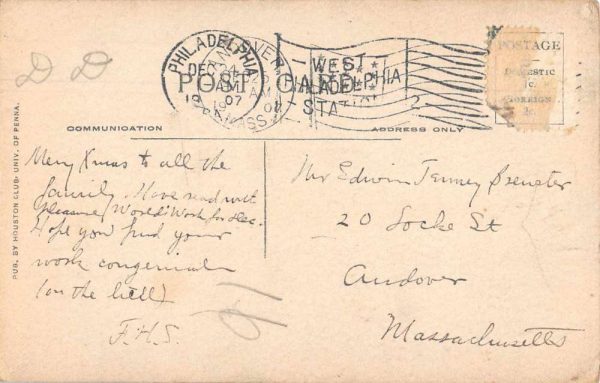 D D
PHILADELPHIA
DEC 24
1907
PA.
MASS.
WEST
PHILADELPHIA
STATION
2
POST CARD
POSTAGE
DOMESTIC
1c.
FOREIGN
2c.
COMMUNICATION
ADDRESS ONLY
PUB. BY HOUSTON CLUB. UNIV. OF PENNA.
Merry Xmas to all the
family. Have read with
pleasure World's Work for Dec.
Hope you find your
work congenial
(on the hill)
F.H.S.
Mr Edwin Tenney Brewster
20 Locke St
Andover
Massachusetts